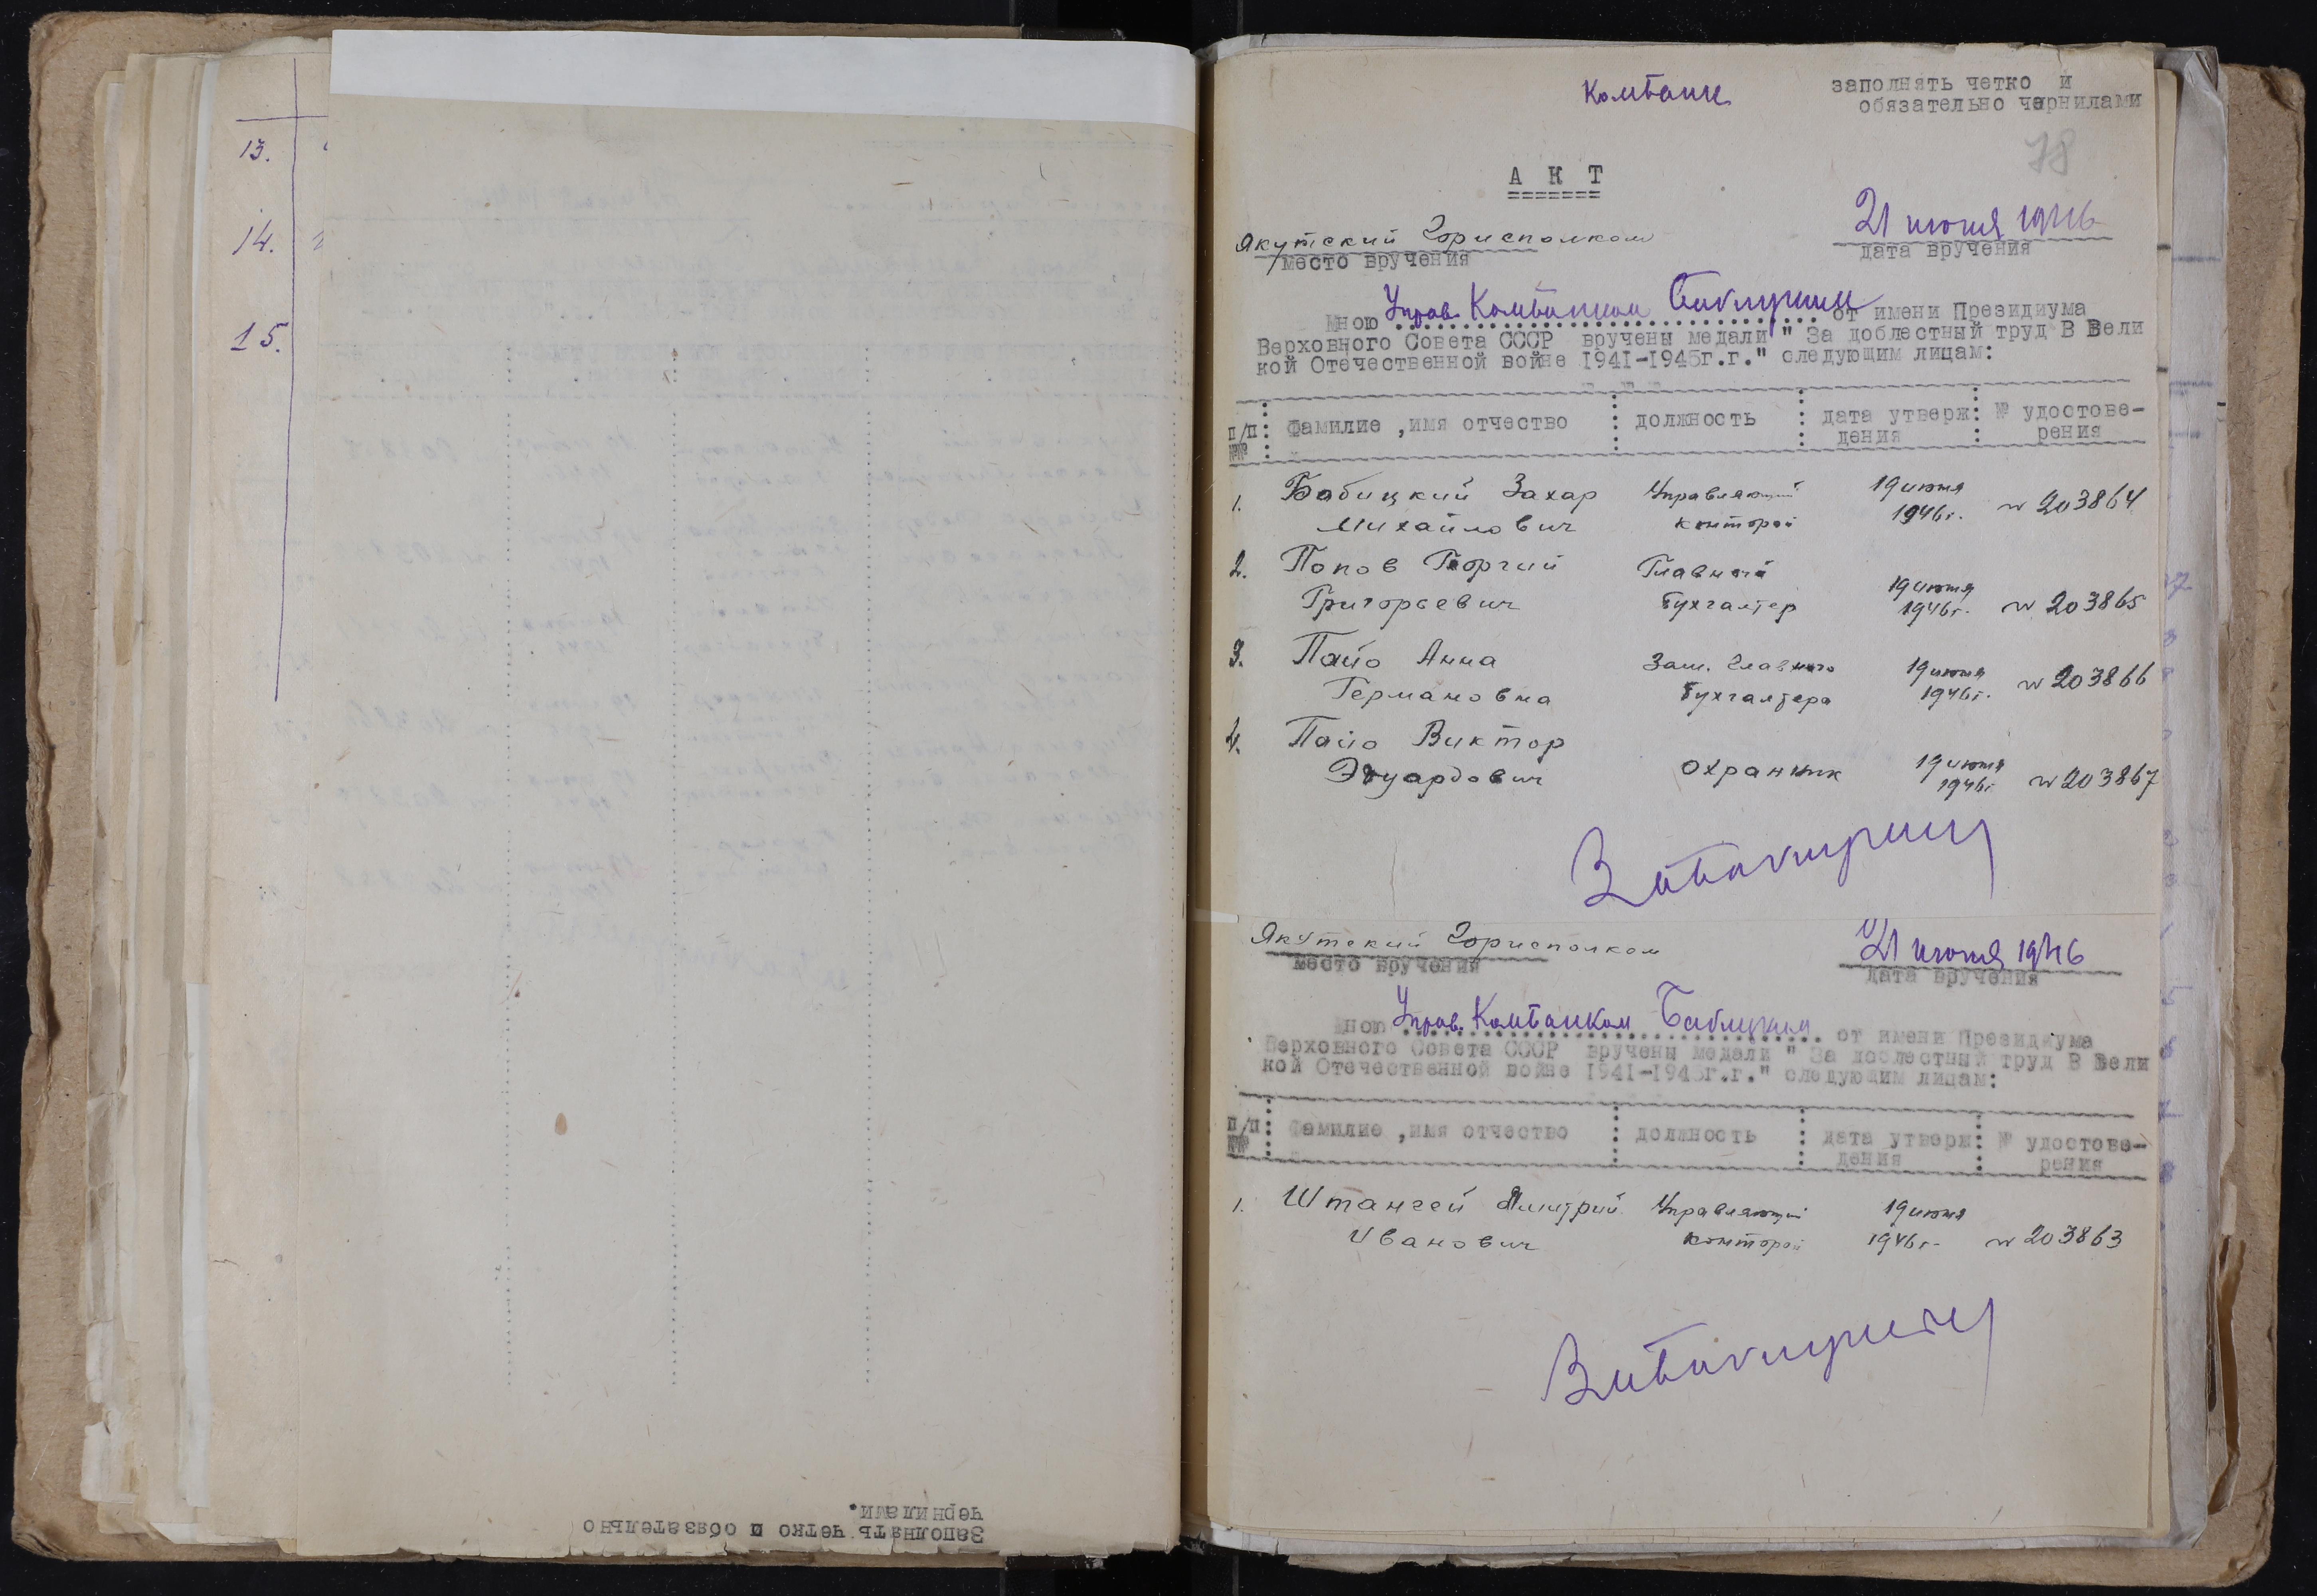 13.
14.
15.
Заполнять четко и обязательно
чернилами.
Комбанк
заполнять четко и
обязательно чернилами
78
А К Т
Якутский Горисполком
место вручения
21 июня 1946
дата вручения
Мною Управ. Комбанком от имени Президиума
Верховного Совета СССР вручены медали " За доблестный труд В Вели
кой Отечественной войне 1941-1945г.г." следующим лицам:
п/п №№ Фамилие ,имя отчество должность дата утверж дения № удостове- рения
1. Бабицкий Захар Управляющий 19 июня № 203864
Михайлович конторой 1946г.
2. Попов Георгий Главный 19 июня
Григорьевич бухгалтер 1946г. № 203865
3. Пайо Анна Зам. Главного 19 июня № 203866
Германовна бухгалтера 1946г.
4. Пайо Виктор 19 июня
Эдуардович охранник 1946г. № 203867
Якутский Горисполком
место вручения
21 июня 1946
дата вручения
Мною Управ. Комбанком от имени Президиума
Верховного Совета СССР вручены медали " За доблестный труд В Вели
кой Отечественной войне 1941-1945г.г." следующим лицам:
п/п №№ Фамилие ,имя отчество должность дата утверж дения № удостове- рения
1. Штангей Дмитрий Управляющий 19 июня
Иванович конторой 1946г. № 203863